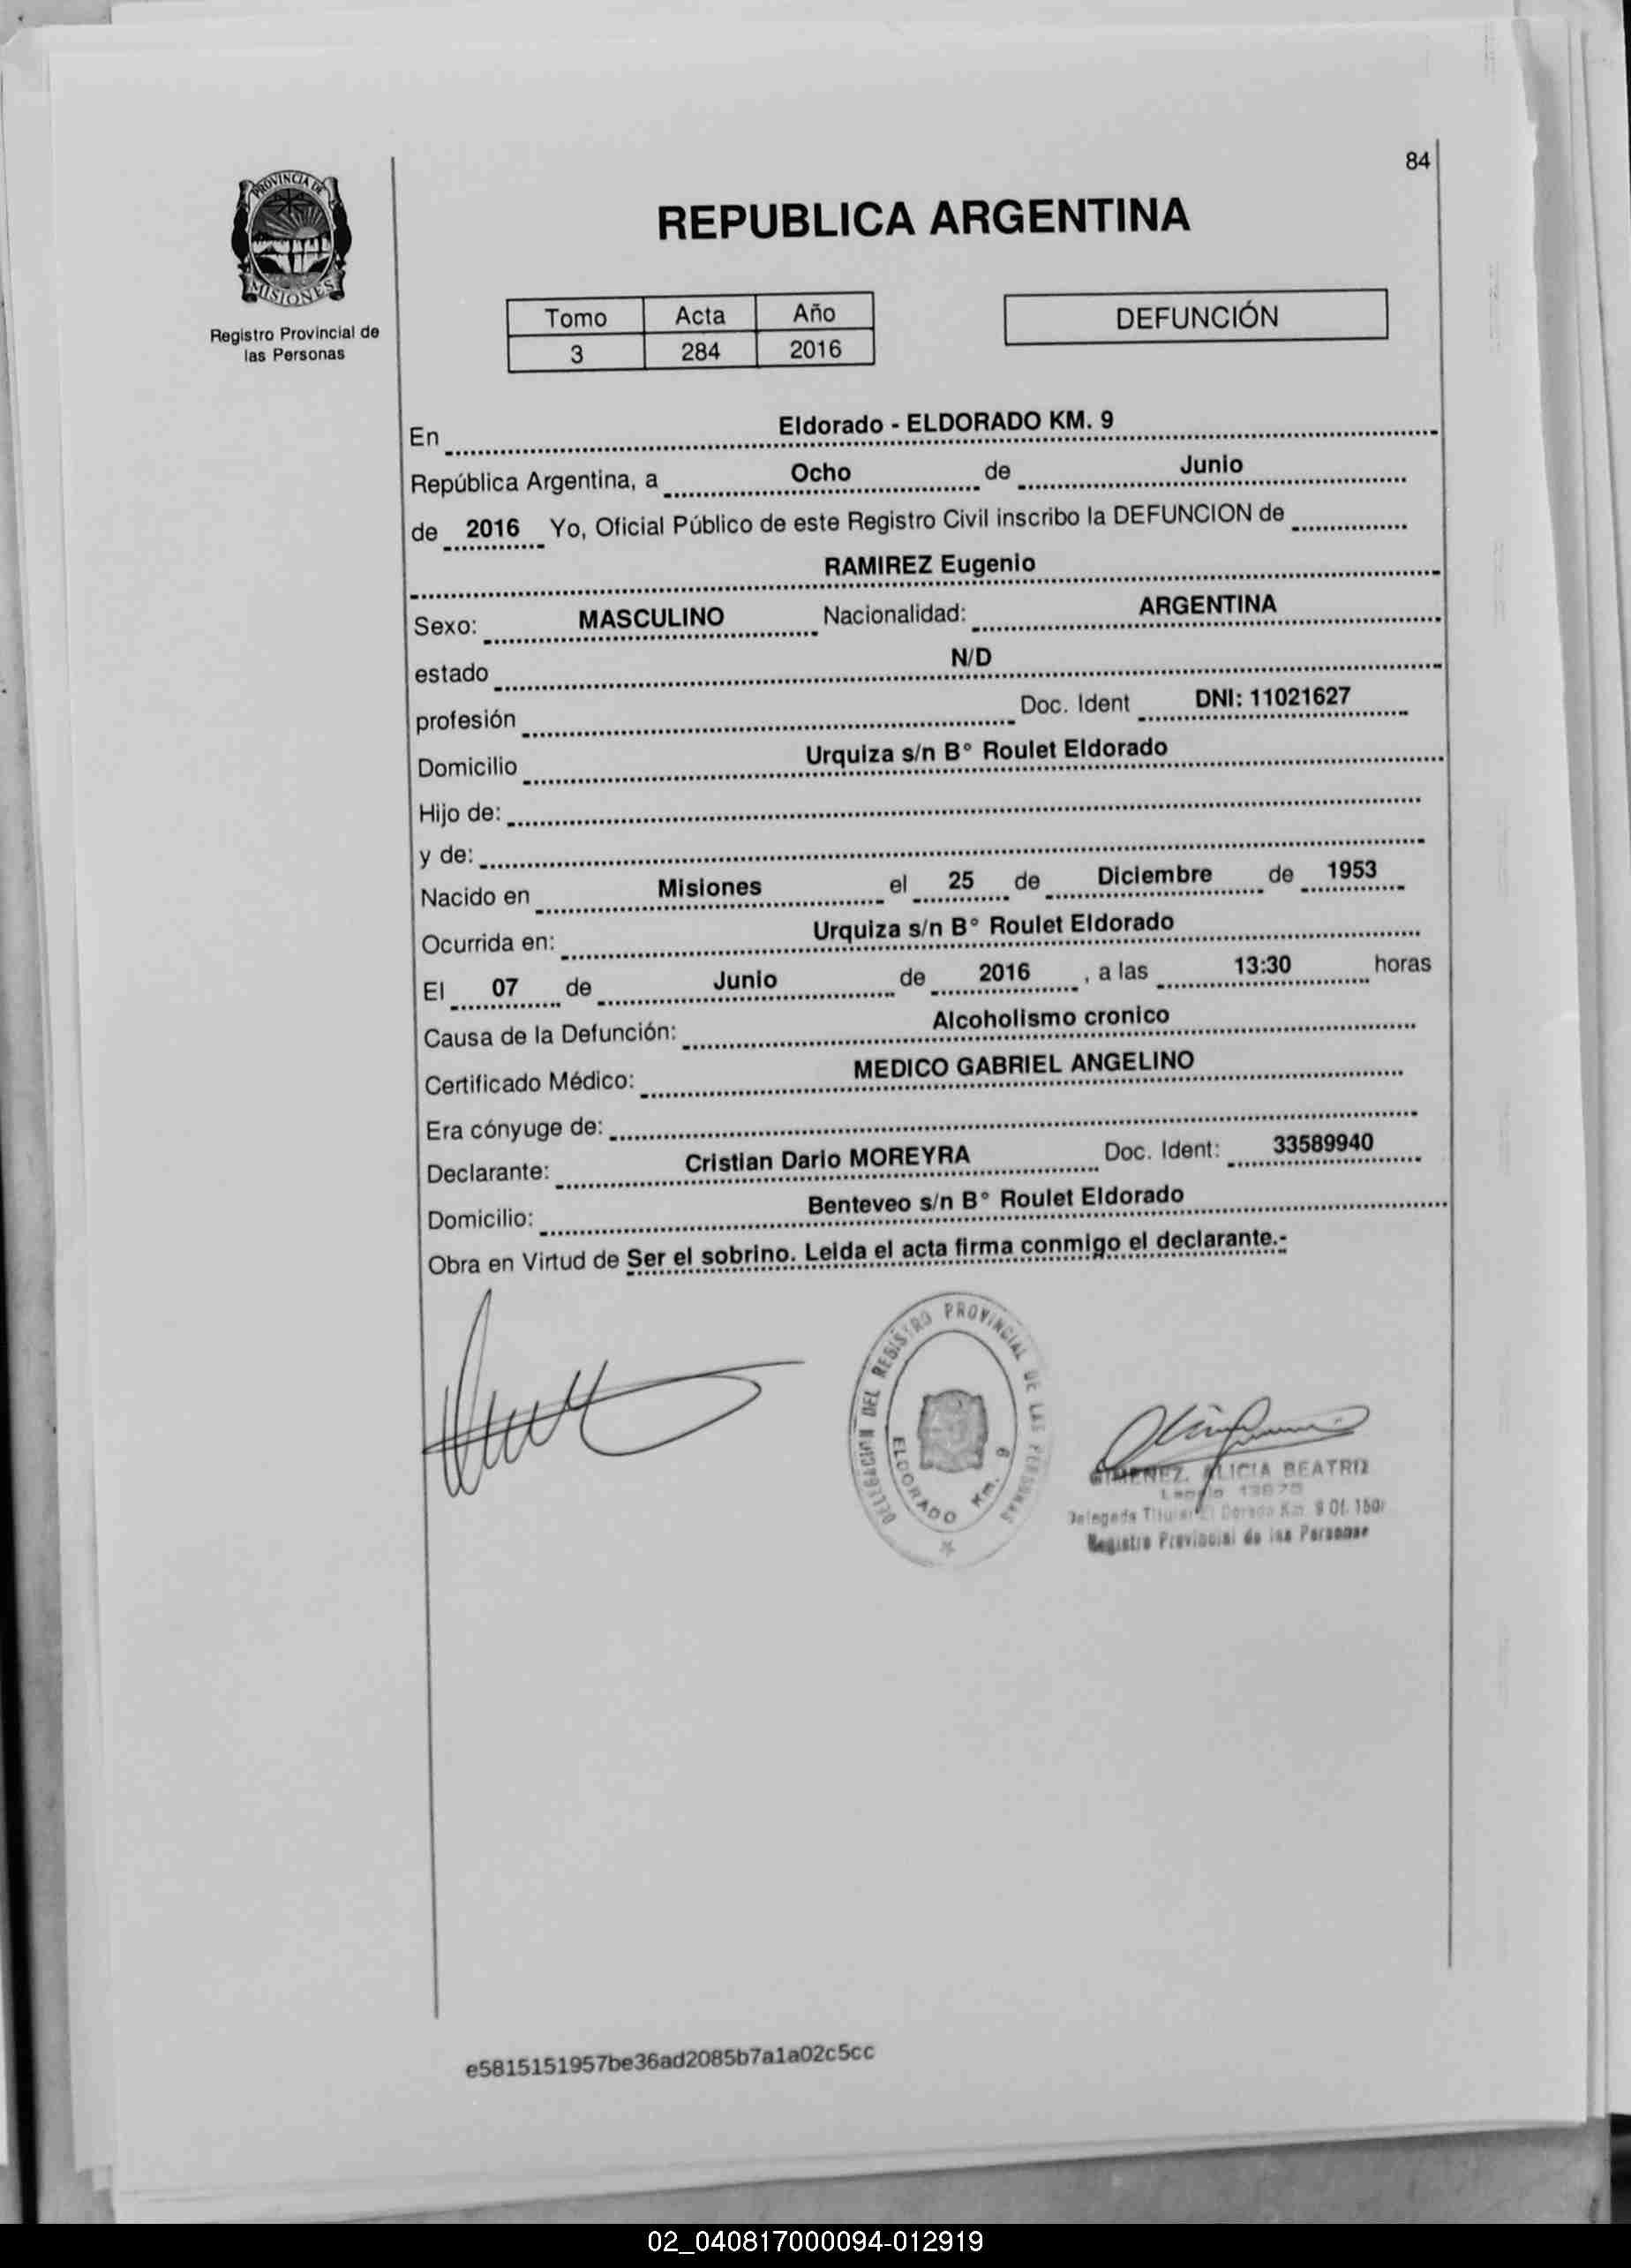 84
PROVINCIA DE
MISIONES
Registro Provincial de
las Personas
REPUBLICA ARGENTINA
Tomo Acta Año
3 284 2016
DEFUNCIÓN
En Eldorado - ELDORADO KM. 9
República Argentina, a Ocho de Junio
de 2016 Yo, Oficial Público de este Registro Civil inscribo la DEFUNCION de
RAMIREZ Eugenio
Sexo: MASCULINO Nacionalidad: ARGENTINA
estado N/D
profesión Doc. Ident DNI: 11021627
Domicilio Urquiza s/n B° Roulet Eldorado
Hijo de:
y de:
Nacido en Misiones el 25 de Diciembre de 1953
Ocurrida en: Urquiza s/n B° Roulet Eldorado
El 07 de Junio de 2016 , a las 13:30 horas
Causa de la Defunción: Alcoholismo cronico
Certificado Médico: MEDICO GABRIEL ANGELINO
Era cónyuge de:
Declarante: Cristian Dario MOREYRA Doc. Ident: 33589940
Domicilio: Benteveo s/n B° Roulet Eldorado
Obra en Virtud de Ser el sobrino. Leida el acta firma conmigo el declarante.-
DELEGACION DEL REGISTRO PROVINCIAL DE LAS PERSONAS
ELDORADO Km. 9
GIMENEZ, ALICIA BEATRIZ
Delegada Titular El Dorado Km. 9 Of.
Registro Provincial de las Personas
e5815151957be36ad2085b7a1a02c5cc
02_040817000094-012919